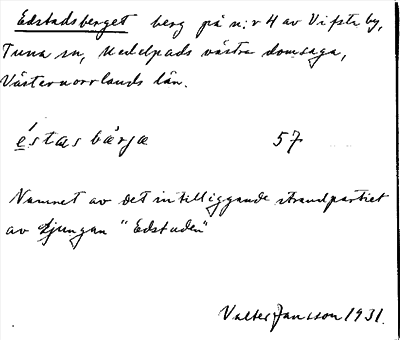 Edstadsberget berg på n:r 4 av Vifsta by,
Tuna sn, Medelpads västra domsaga,
Västernorrlands län.
éstasbärjæ 57
Namnet av det intilliggande strandpartiet
av Ljungan "Edstaden"
Valter Jansson 1931.